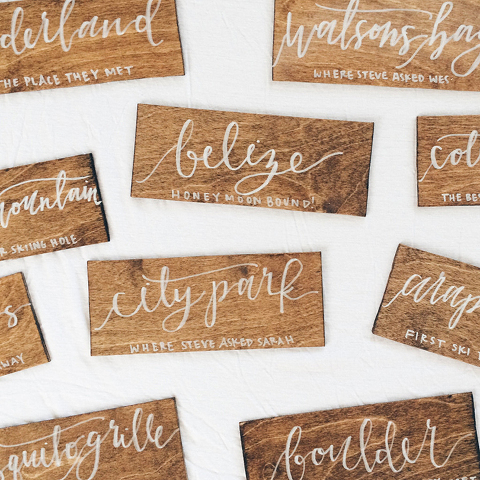 derland
THE PLACE THEY MET
watsons bay
WHERE STEVE ASKED WES
belize
HONEYMOON BOUND!
mountain
R SKIING HOLE
THE BES
city park
WHERE STEVE ASKED SARAH
arap
FIRST SKI T
s
AWAY
squito grille
boulder